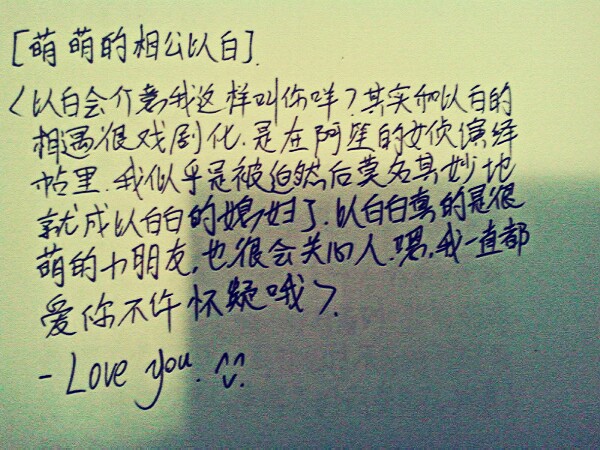 [萌萌的相公以白].
<以白会介意我这样叫你咩>其实和以白的
相遇很戏剧化.是在阿笙的女侦演绎
帖里.我似乎是被迫然后莫名其妙地
就成以白白的媳妇了.以白白真的是很
萌的小朋友,也很会关心人.嗯,我一直都
爱你不许怀疑哦>.
- Love you. ^v^